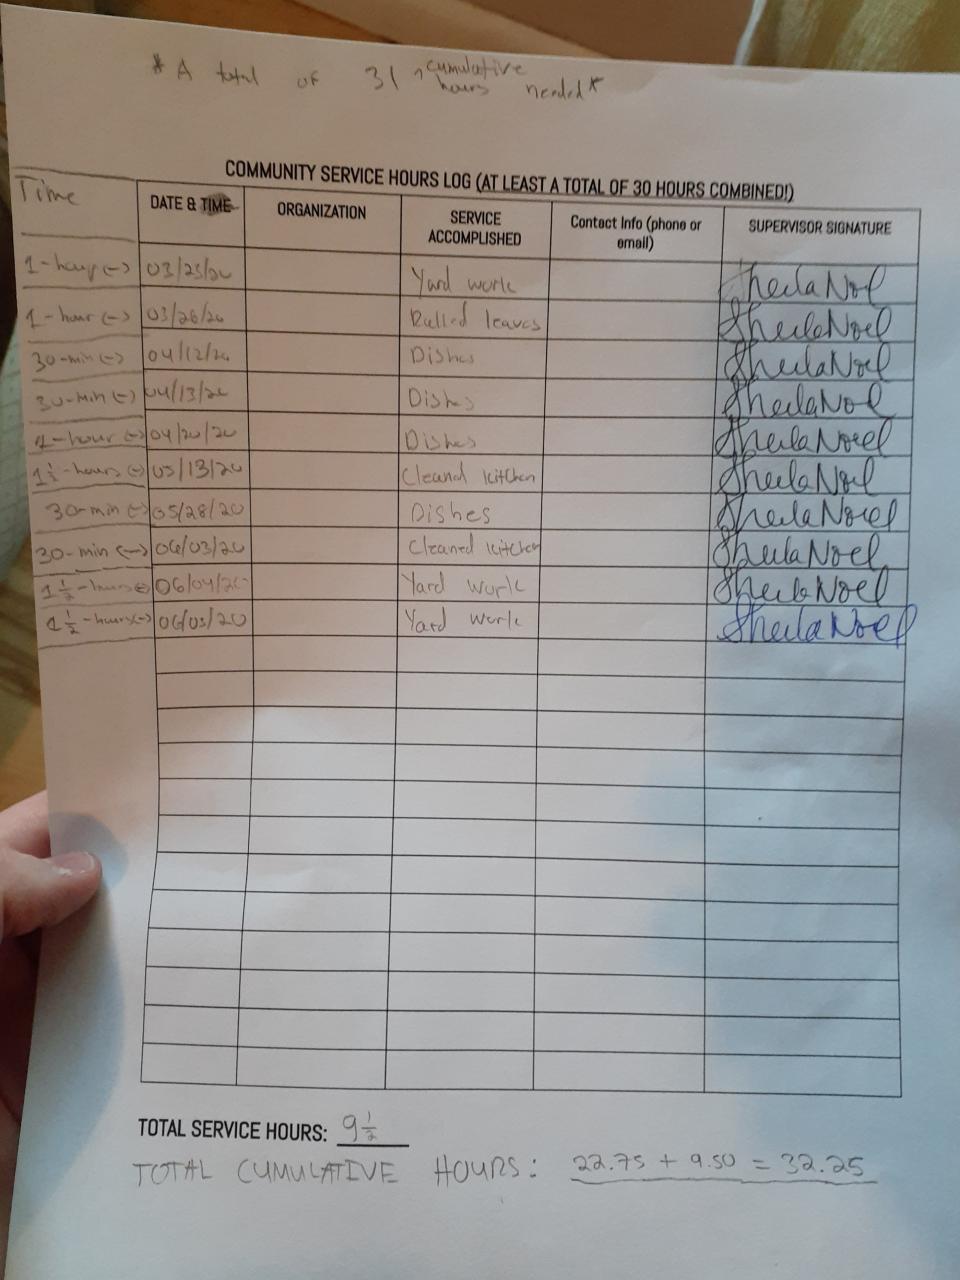 * A total of 31 cumulative hours needed *
COMMUNITY SERVICE HOURS LOG (AT LEAST A TOTAL OF 30 HOURS COMBINED!)
Time DATE & TIME ORGANIZATION SERVICE ACCOMPLISHED Contact Info (phone or email) SUPERVISOR SIGNATURE
1-hour(-) 03/25/20 Yard work Sheila Noel
1-hour(-) 03/26/20 leaves Sheila Noel
30-min(-) 04/12/20 Dishes Sheila Noel
30-min(-) 04/13/20 Dishes Sheila Noel
1-hour(-) 04/20/20 Dishes Sheila Noel
1½-hours(-) 05/13/20 Cleaned kitchen Sheila Noel
30-min(-) 05/28/20 Dishes Sheila Noel
30-min(-) 06/03/20 Cleaned kitchen Sheila Noel
1½-hours(-) 06/04/20 Yard work Sheila Noel
1½-hours(-) 06/05/20 Yard work Sheila Noel
TOTAL SERVICE HOURS: 9½
TOTAL CUMULATIVE HOURS: 22.75 + 9.50 = 32.25